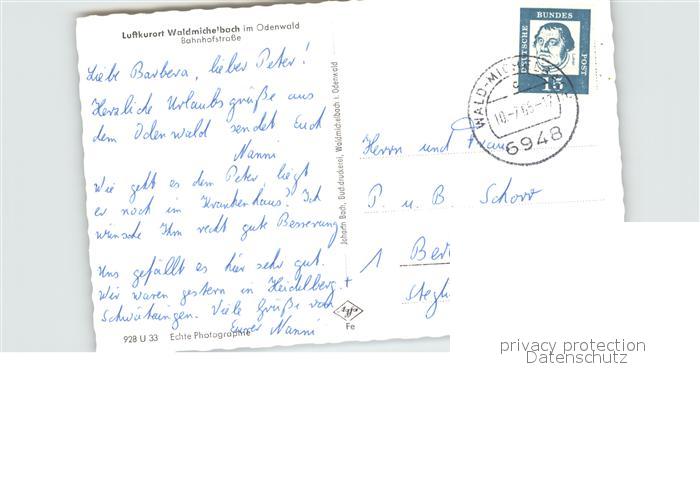 Luftkurort Waldmichelbach im Odenwald
Bahnhofstraße
Liebe Barbara, lieber Peter!
Herzliche Urlaubsgrüße aus
dem Odenwald sendet Euch
Nanni
Wie geht es dem Peter, liegt
er noch im Krankenhaus? Ich
wünsche Ihm recht gute Besserung
Uns gefällt es hier sehr gut.
Wir waren gestern in Heidelberg +
Schwetzingen. Viele Grüße von
Eurer Nanni
928 U 33 Echte Photographie
Johann Bach, Buchdruckerei, Waldmichelbach i. Odenwald
Fe
DEUTSCHE BUNDESPOST
15
WALD-MICHELBACH
10.-7.65.-17
6948
Herrn und Frau
P. u. B. Schorr
1 Ber
Stegl
privacy protection
Datenschutz